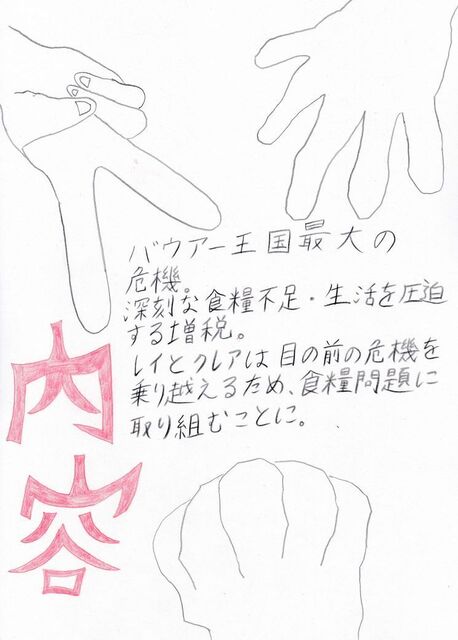 バウアー王国最大の
危機。
深刻な食糧不足・生活を圧迫
する増税。
レイとクレアは目の前の危機を
乗り越えるため、食糧問題に
取り組むことに。
内容